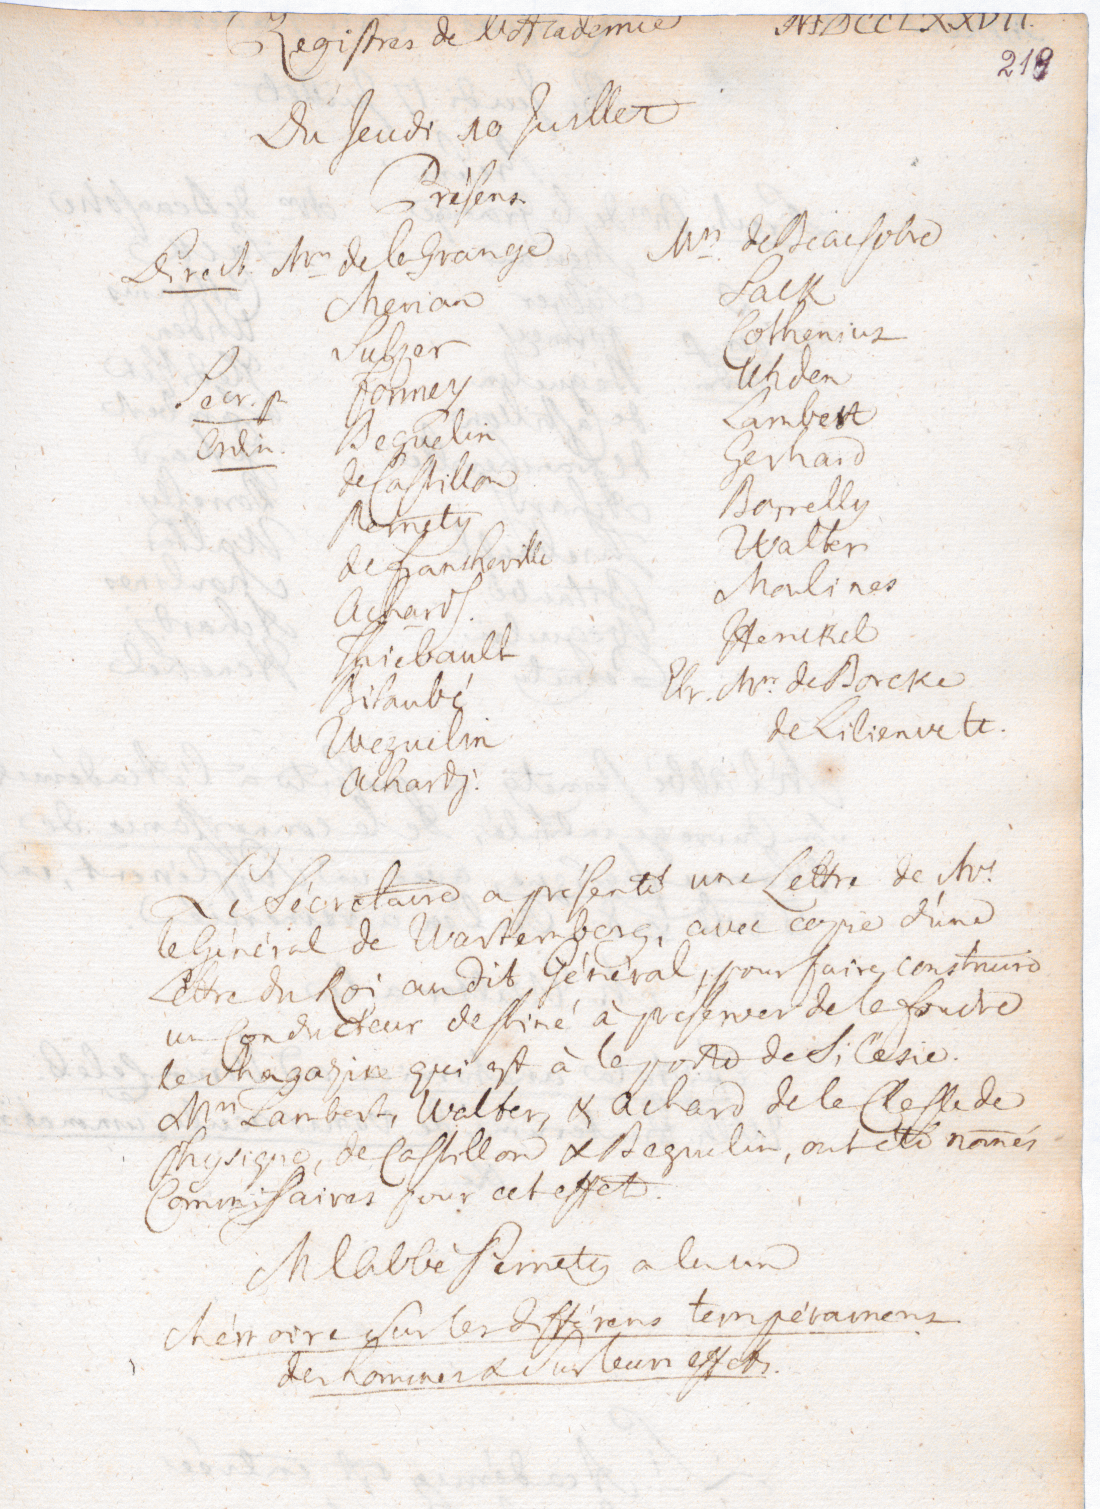 Registres de l'Academie MDCCLXXVII.
219
Du Jeudi 10 Juillet
Présens.
Direct. Mrs de la Grange
Merian
Sulzer
Secr. p. Formey
Ordin. Beguelin
de Castillon
Pernety
de Francheville
Achard S.
Thiebault
Bitaubé
Weguelin
Achard j.
Mrs de Beausobre
Sack
Cothenius
Uhden
Lambert
Gerhard
Borrelly
Walter
Moulines
Henckel
Etr. Mrs de Borcke
de Lilienvelt.
Le Sécretaire a présenté une Lettre de Mr.
le Général de Wartemberg, avec copie d'une
Lettre du Roi au dit Général, pour faire construire
un Conducteur destiné à préserver de la foudre
le Magazin qui est à la porte de Silesie.
Mrs Lambert, Walter, & Achard de la Classe de
Physique, de Castillon & Beguelin, ont été només
Commissaires pour cet effet.
M l'Abbé Pernety a lu un
Mémoire sur les différens tempéramens
des hommes & sur leurs effets.